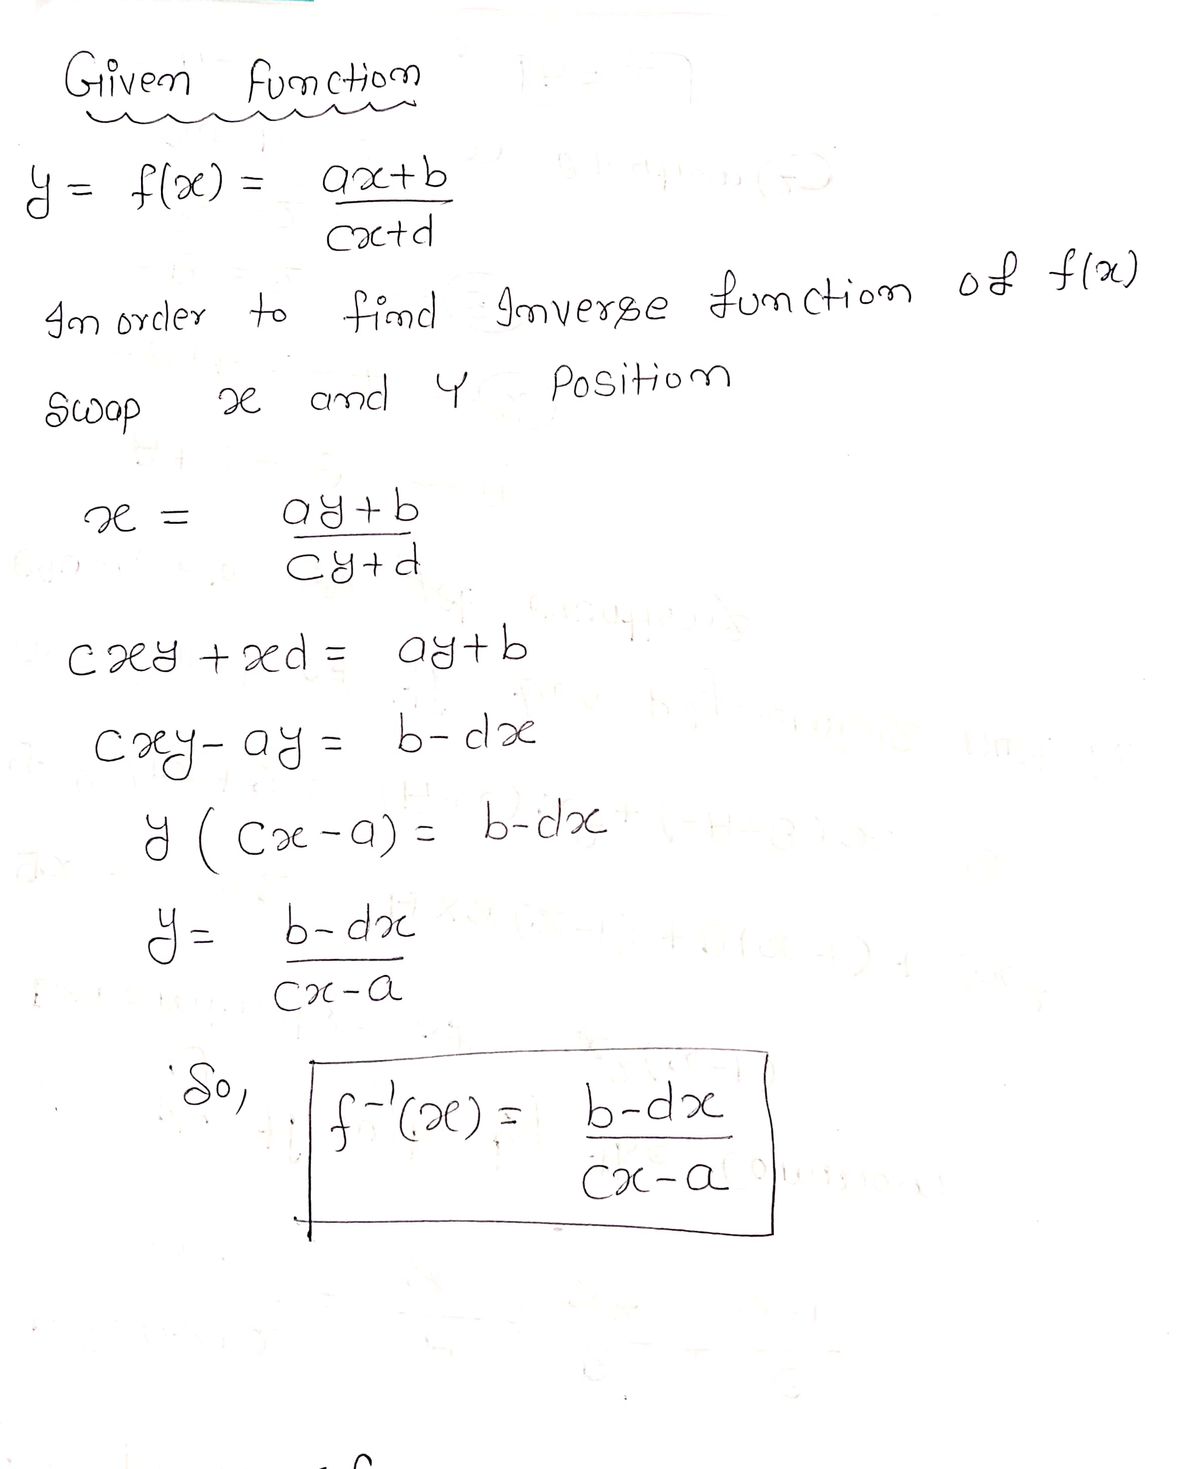 Given function
y = f(x) = ax+b
cx+d
In order to find Inverse function of f(x)
Swap x and y Position
x = ay+b
cy+d
cxy + xd = ay+b
cxy - ay = b-dx
y ( cx-a) = b-dx
y = b-dx
cx-a
So, f⁻¹(x) = b-dx
cx-a